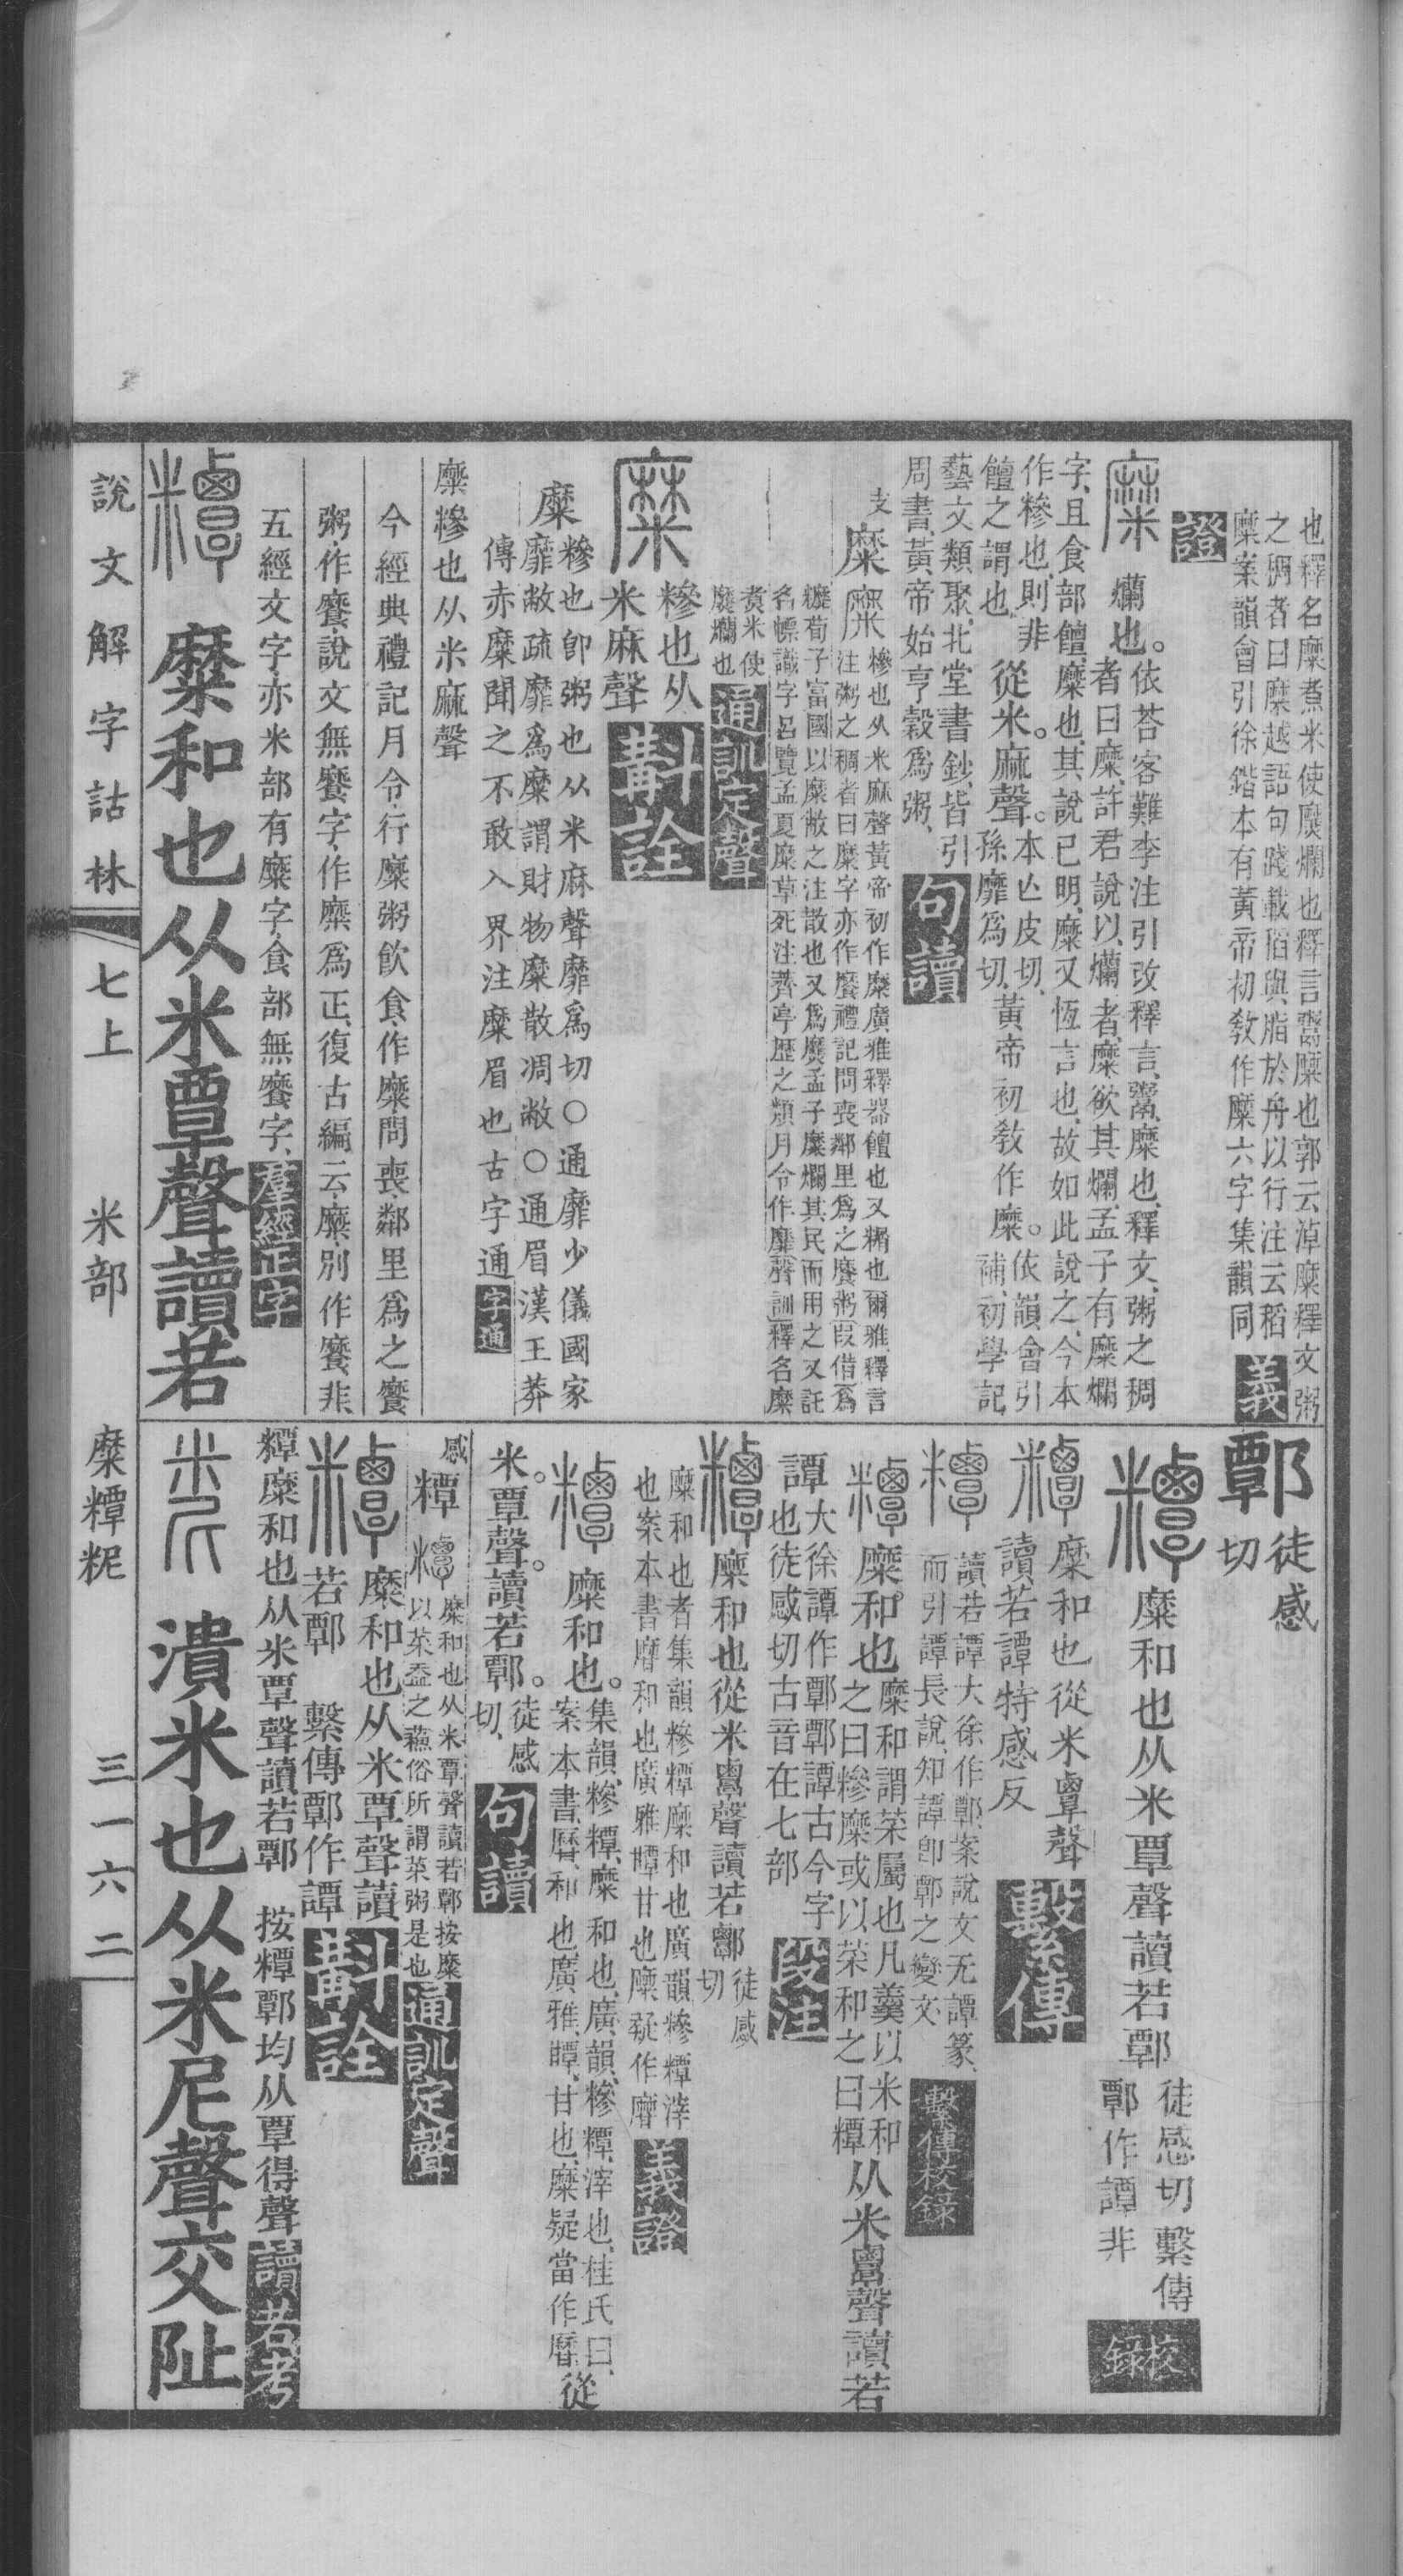 也釋名糜煮米使糜爛也釋言鬻糜也郭云淖糜釋文粥
之稠者曰糜越語句踐載稻與脂於舟以行注云稻
糜案韻會引徐鍇本有黃帝初教作糜六字集韻同義
證
糜爛也。依荅客難李注引改釋言鬻糜也釋文粥之稠
者曰糜許君說以爛者糜欲其爛孟子有糜爛
字且食部饘糜也其說已明糜又恆言也故如此說之今本
作糝也則非從米。麻聲。本亡皮切黃帝初教作糜。依韻會引
饘之謂也孫靡為切補初學記
藝文類聚北堂書鈔皆引
周書黃帝始亨穀為粥句讀
支糜糝也从米麻聲黃帝初作糜廣雅釋器饘也又糏也爾雅釋言
注粥之稠者曰糜字亦作䊳禮記問喪鄰里為之䊳粥段借為
䊳荀子富國以糜敝之注散也又為䊳孟子糜爛其民而用之又託
名幖識字呂覽孟夏糜草死注薺亭歷之類月令作靡聲訓釋名糜
煮米使
糜爛也通訓定聲
糜糝也从
米麻聲斠詮
糜糝也卽粥也从米麻聲靡為切○通靡少儀國家
靡敝疏靡為糜謂財物糜散凋敝○通眉漢王莽
傳赤糜聞之不敢入界注糜眉也古字通字通
糜糝也从米麻聲
今經典禮記月令行糜粥飲食作糜問喪鄰里為之䊳
粥作䊳說文無䊳字作糜為正復古編云糜別作䊳非
五經文字亦米部有糜字食部無䊳字羣經正字
糜和也从米覃聲讀若
鄿徒感
切
糜和也从米覃聲讀若鄿徒感切繫傳
鄿作譚非校錄
糜和也從米覃聲
讀若譚特感反繫傳
讀若譚大徐作鄿案說文无譚篆
而引譚長說知譚卽鄿之變文繫傳校錄
糜和也糜和謂菜屬也凡羹以米和
之曰糝糜或以菜和之曰糧从米覃聲讀若
譚大徐譚作鄿鄿譚古今字
也徒感切古音在七部段注
糜和也從米覃聲讀若鄿徒感
切
糜和也者集韻糝糧糜和也廣韻糝糧滓
也案本書䊳和也廣雅䐺甘也糜疑作䊳義證
糜和也。集韻糝糧糜和也廣韻糝糧滓也桂氏曰從
案本書厤和也廣雅䐺甘也糜疑當作厤
米。覃聲。讀若鄿。徒感
切句讀
感糧糜和也从米覃聲讀若鄿按糜
以菜益之蘓俗所謂菜粥是也通訓定聲
糜和也从米覃聲讀
若鄿繫傳鄿作譚斠詮
糧糜和也从米覃聲讀若鄿按糧鄿均从覃得聲讀若考
潰米也从米尼聲交阯
說文解字詁林七上米部糜糧䊼三一六二